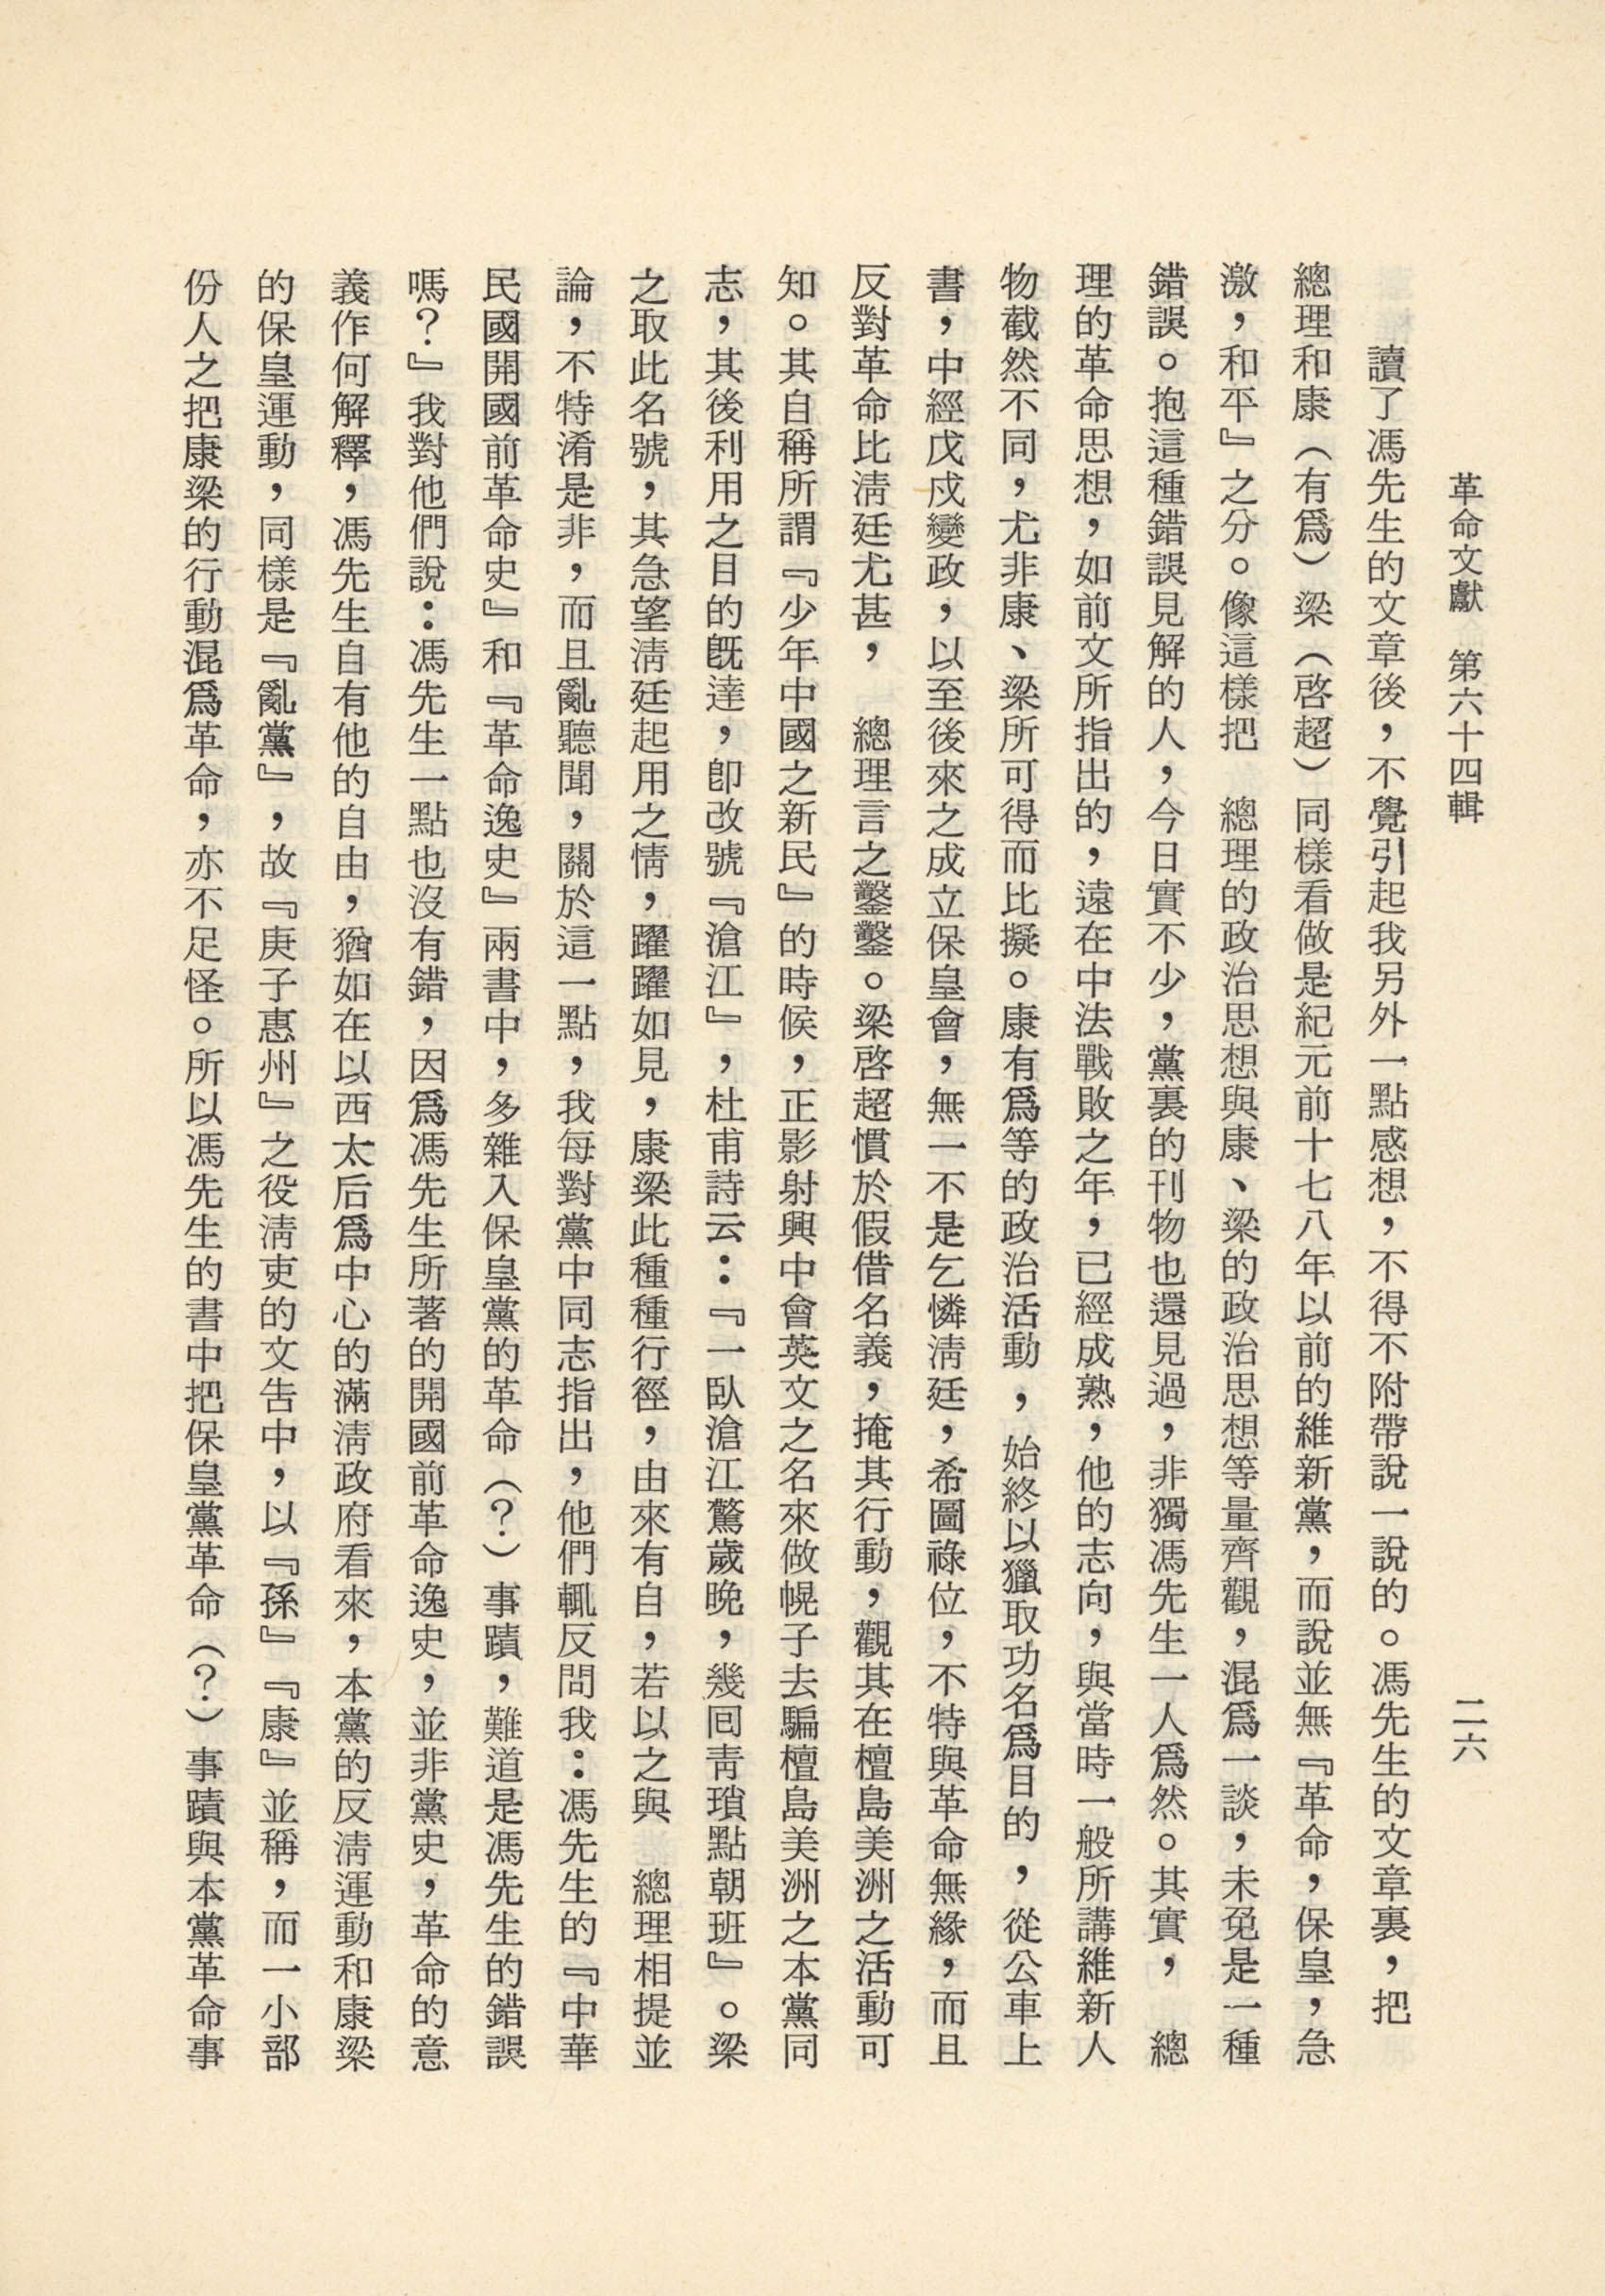 革命文獻　第六十四輯
二六
讀了馮先生的文章後，不覺引起我另外一點感想，不得不附帶說一說的。馮先生的文章裏，把
總理和康（有爲）梁（啓超）同樣看做是紀元前十七八年以前的維新黨，而說並無『革命，保皇，急
激，和平』之分。像這樣把　總理的政治思想與康、梁的政治思想等量齊觀，混爲一談，未免是一種
錯誤。抱這種錯誤見解的人，今日實不少，黨裏的刊物也還見過，非獨馮先生一人爲然。其實，　總
理的革命思想，如前文所指出的，遠在中法戰敗之年，已經成熟，他的志向，與當時一般所講維新人
物截然不同，尤非康、梁所可得而比擬。康有爲等的政治活動，始終以獵取功名爲目的，從公車上
書，中經戊戌變政，以至後來之成立保皇會，無一不是乞憐淸廷，希圖祿位，不特與革命無緣，而且
反對革命比淸廷尤甚，　總理言之鑿鑿。梁啓超慣於假借名義，掩其行動，觀其在檀島美洲之活動可
知。其自稱所謂『少年中國之新民』的時候，正影射興中會英文之名來做幌子去騙檀島美洲之本黨同
志，其後利用之目的旣達，卽改號『滄江』，杜甫詩云：『一臥滄江驚歲晚，幾囘靑瑣點朝班』。梁
之取此名號，其急望淸廷起用之情，躍躍如見，康梁此種種行徑，由來有自，若以之與　總理相提並
論，不特淆是非，而且亂聽聞，關於這一點，我每對黨中同志指出，他們輒反問我：馮先生的『中華
民國開國前革命史』和『革命逸史』兩書中，多雜入保皇黨的革命（？）事蹟，難道是馮先生的錯誤
嗎？』我對他們說：馮先生一點也沒有錯，因爲馮先生所著的開國前革命逸史，並非黨史，革命的意
義作何解釋，馮先生自有他的自由，猶如在以西太后爲中心的滿淸政府看來，本黨的反淸運動和康梁
的保皇運動，同樣是『亂黨』，故『庚子惠州』之役淸吏的文告中，以『孫』『康』並稱，而一小部
份人之把康梁的行動混爲革命，亦不足怪。所以馮先生的書中把保皇黨革命（？）事蹟與本黨革命事